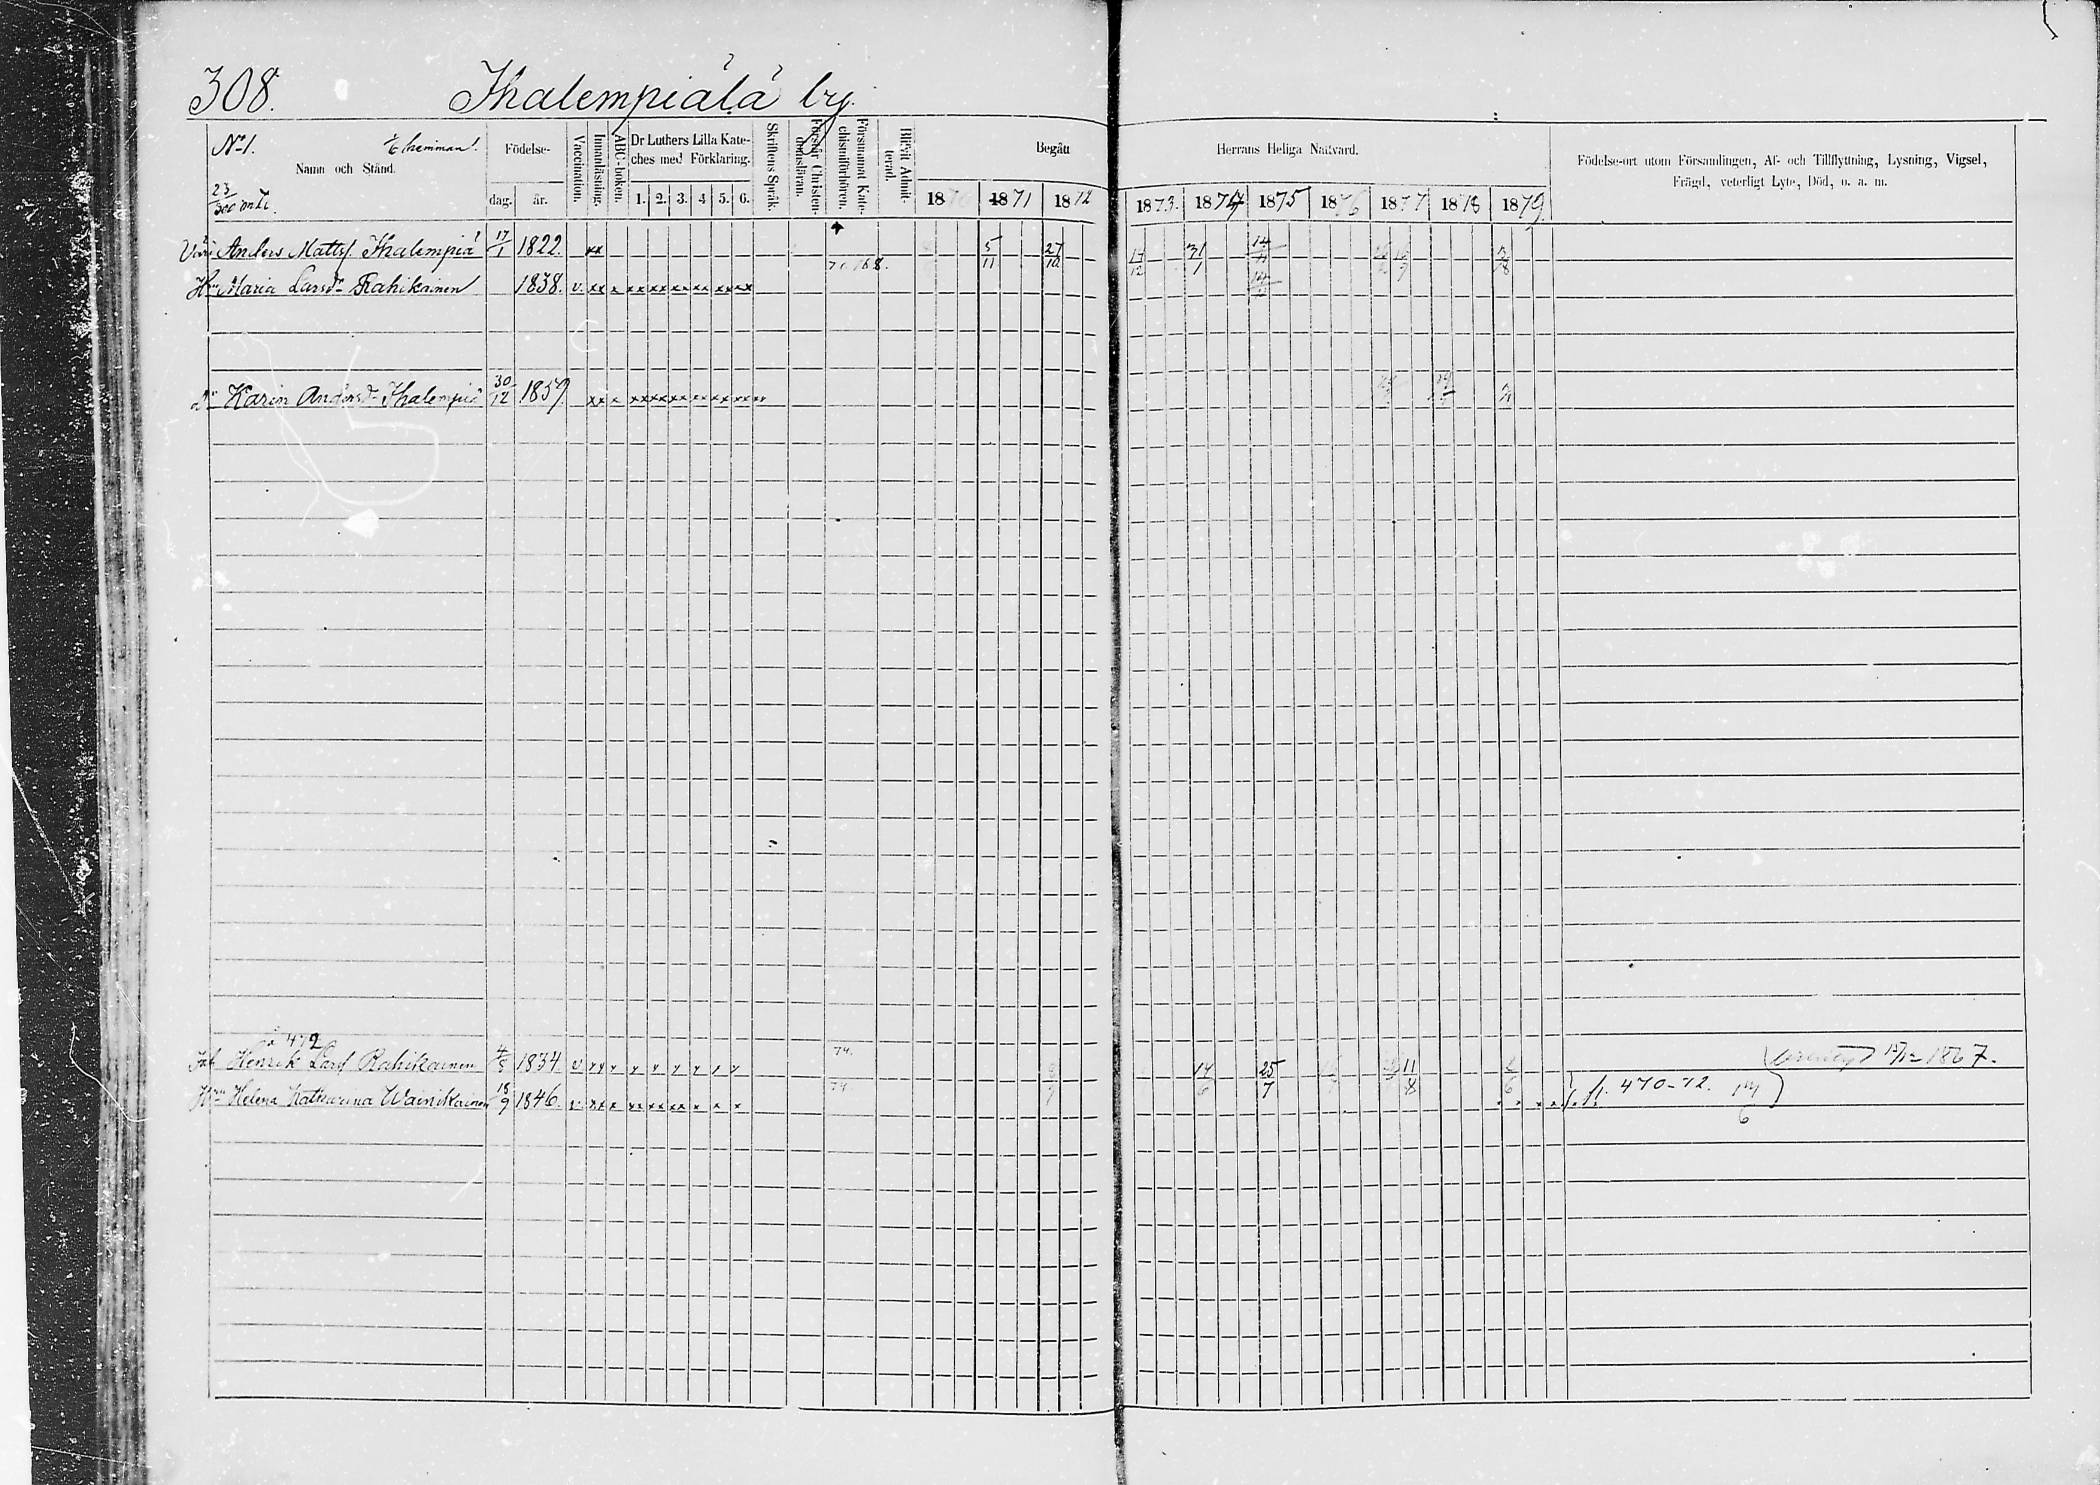 308. Ihalempiälä by.
No 1. hemman.
Namn och Stånd.
23/300 mtl.
Födelse-
dag. år.
Vaccination.
Innanläsning.
ABC-boken.
Dr Luthers Lilla Kate-
ches med Förklaring.
1. 2. 3. 4 5. 6.
Skriftens Språk.
Förstår Christen-
domsläran.
Försummat Kate-
chismiförhören.
Blifvit Admit-
terad.
Begått Herrans Heliga Nattvard.
1870 1871 1872 1873. 1874 1875 1876 1877 1878 1879.
Födelse-ort utom Församlingen, Af- och Tillflyttning, Lysning, Vigsel,
Frägd, veterligt Lyte, Död, o. a. m.
Anders Matts. Ihalempiä 17/1 1822. xx 5/11 27/10 14/12 31/1 14/11
Hru Maria Larsdr Rahikainen 1838. v. xx x xx xx xx xx xx xx 14/11
dr Karin Andersdr Ihalempiä 30/12 1859. xx x xx xx xx xx xx xx
å 472
Henrik Lars. Rahikainen 4/5 1834 v 74. 14/6 25/7 11/8 1867.
Hru Helena Katharina Wainikainen 18/9 1846. v. xx x xx xx xx x x x 74 p. 470-72.